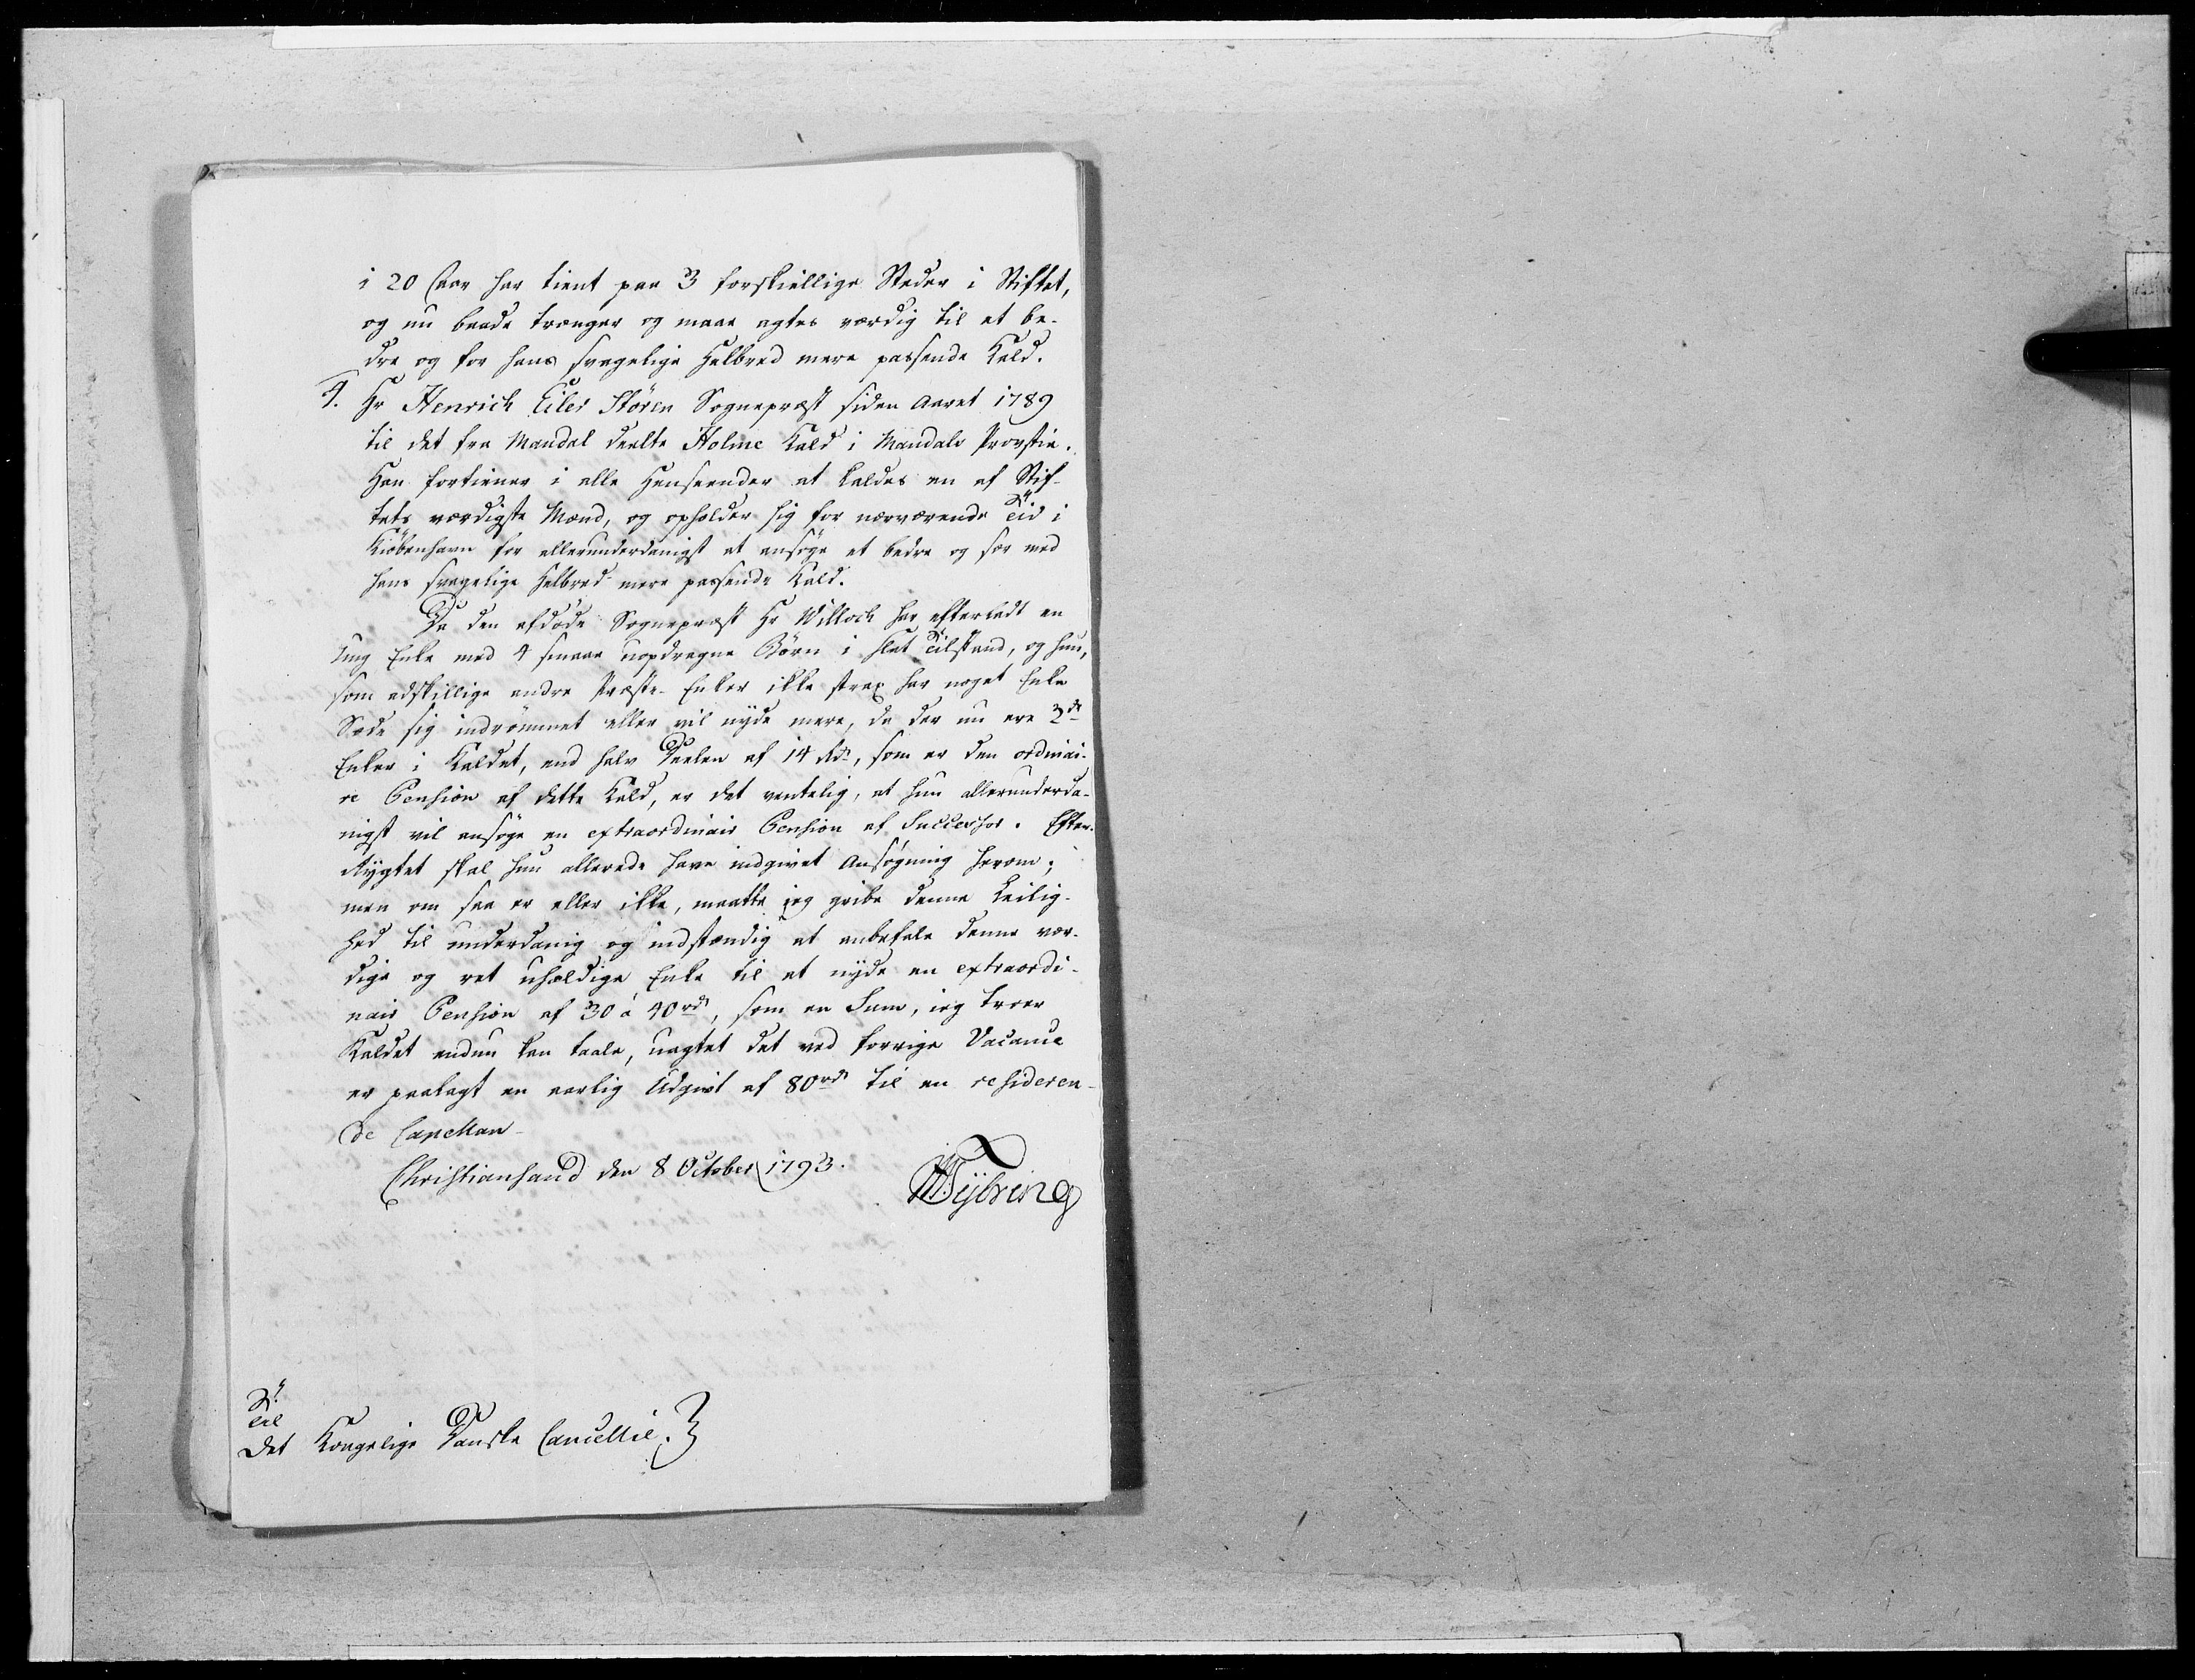 i 20 Aar har tient paa 3 forskiellige Steder i Stiftet,
og nu baade trænger og maae agtes værdig til et be-
dre og for hans svagelige Helbred mere passende Kald.
4. Hr Henrich Eiler Stören Sognepræst siden Aaret 1789
til det fra Mandal deelte Holme Kald i Mandals Provstie.
Han fortiener i alle Henseender at kaldes en af Stif-
tets værdigste Mænd, og opholder sig for nærværende Tid i
Kiöbenhavn for allerunderdanigst at ansøge et bedre og for med
hans svagelige Helbred mere passende Kald.
Da den afdøde Sognepræst Hr Willoch har efterladt en
ung Enke med 4 smaae uopdragne Børn i slet Tilstand, og hun,
som adskillige andre Præste-Enker ikke strax har noget Enke
Sæde sig indrømmet eller vil nyde mere, da der nu ere 2de
Enker i Kaldet, end halv Deelen af 14 Rdr, som er den ordinai-
re Pension af dette Kald, er det ventelig, at hun allerunderda-
nigst vil ansøge en extraordinair Pension af Successor. Efter
Rygtet skal hun allerede have indgivet Ansøgning herom;
men om saa er eller ikke, maatte jeg gribe denne Leilig-
hed til underdanig og indstændig at anbefale denne vær-
dige og ret uheldige Enke til at nyde en extraordi-
nair Pension af 30 à 40 rdr, som en Sum, ieg troer
Kaldet endnu kan taale, uagtet det ved forrige Vacance
er paalagt en aarlig Udgivt af 80 rdr til en resideren-
de Capellan-
Christiansand den 8 October 1793.
Tybring
Til
Det Kongelige Danske Cancellie.